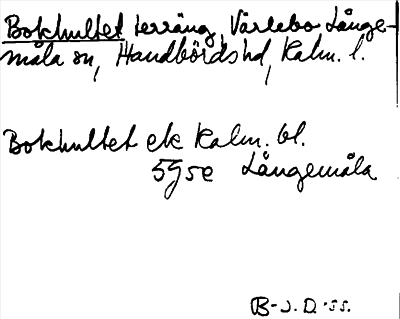 Bokhultet terräng, Värlebo Långe-
måla sn, Handbörds hd, Kalm. l.
Bokhultet ek Kalm. bl.
5g5e Långemåla
B-J. D-ss.